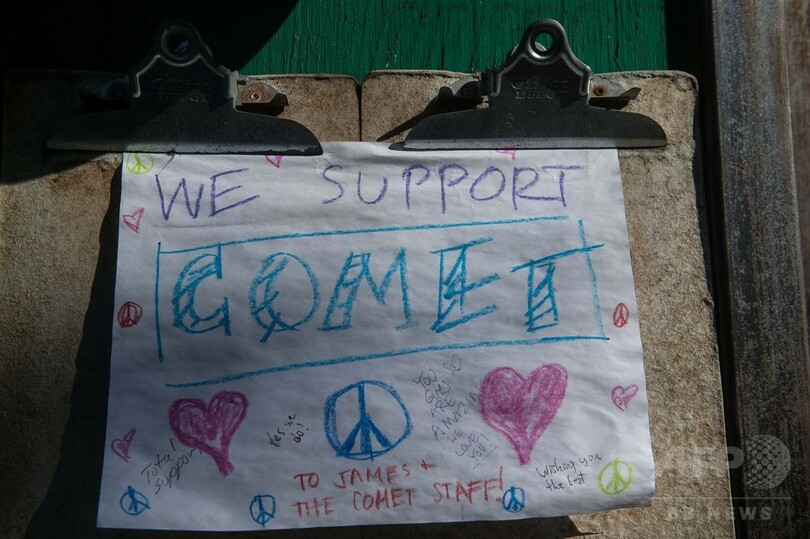 WE SUPPORT
COMET
YOU
GUYS
ARE
AMAZING
WE
LOVE
YOU!
Yes we
do!
Total
support
TO JAMES +
THE COMET STAFF!
Wishing you
the best
AFP
BB NEWS